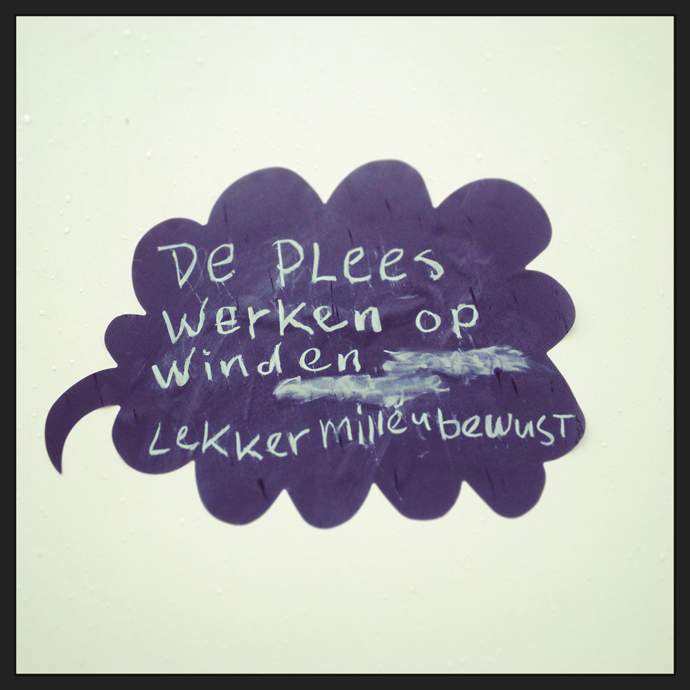 De PLees
Werken op
Winden
Lekker milieubewust